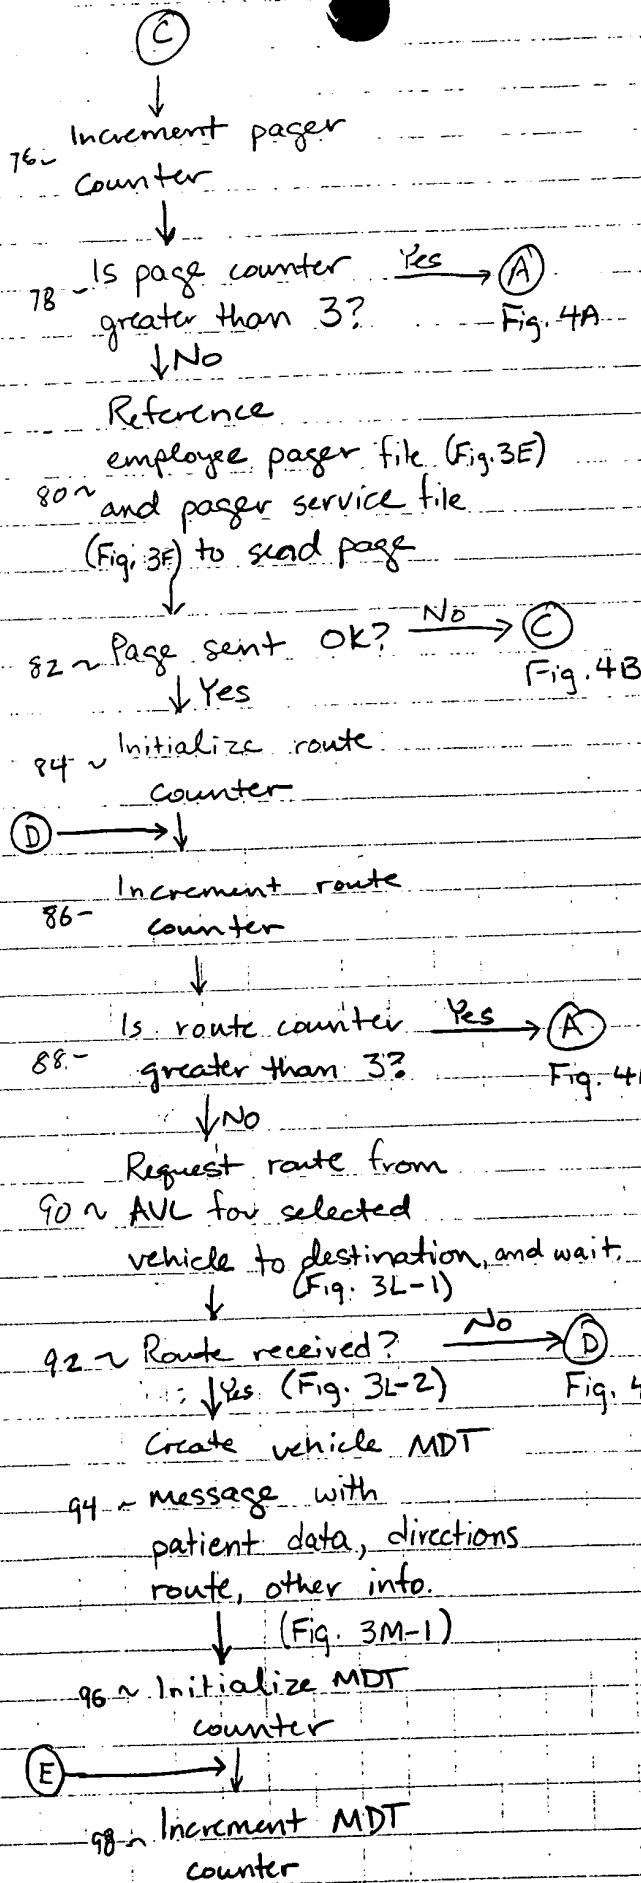 C
Increment pager
76~
counter
Is page counter Yes A
78 -
greater than 3? Fig. 4A
No
Reference
employee pager file (Fig. 3E)
80~ and pager service file
(Fig. 3F) to send page
82~ Page sent OK? No C
Yes Fig. 4B
84~ Initialize route
counter
D
Increment route
86-
counter
Is route counter Yes A
88.-
greater than 3? Fig. 4
No
Request route from
90~ AVL for selected
vehicle to destination, and wait.
(Fig. 3L-1)
92~ Route received? No D
Yes (Fig. 3L-2) Fig. 4
Create vehicle MDT
94~ message with
patient data, directions
route, other info.
(Fig. 3M-1)
96~ Initialize MDT
counter
E
98~ Increment MDT
counter